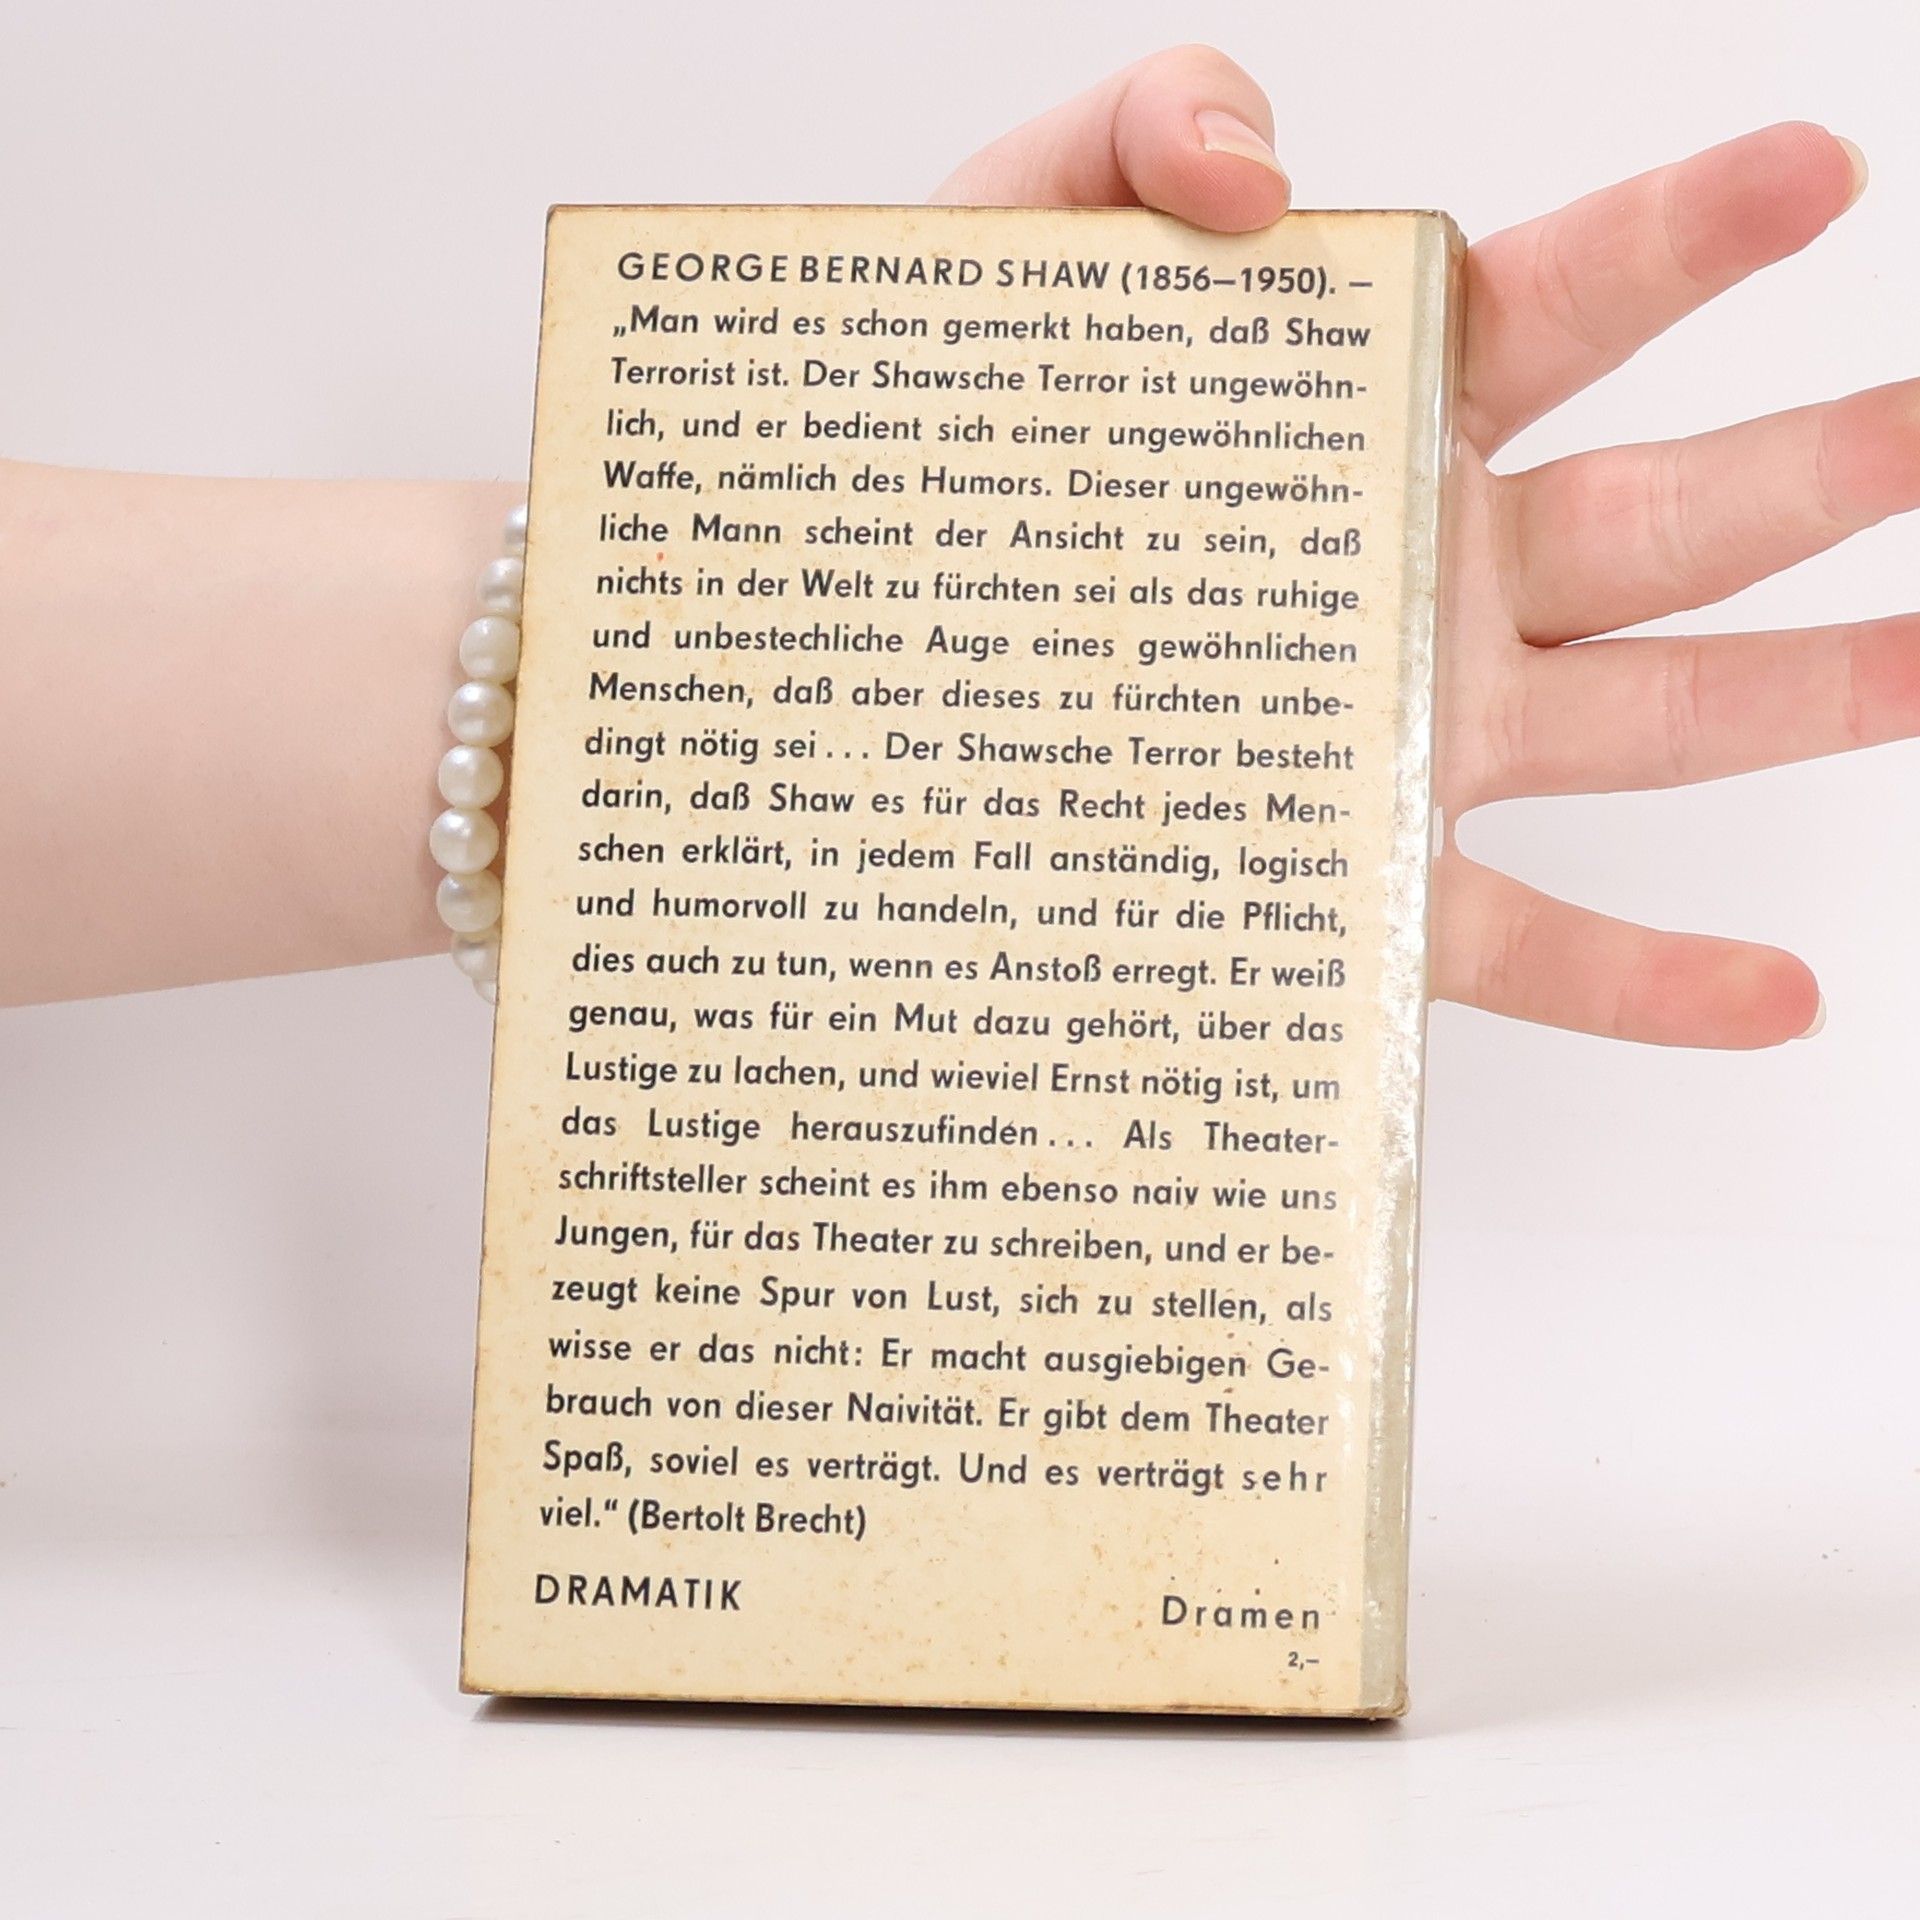 GEORGE BERNARD SHAW (1856–1950). –
„Man wird es schon gemerkt haben, daß Shaw
Terrorist ist. Der Shawsche Terror ist ungewöhn-
lich, und er bedient sich einer ungewöhnlichen
Waffe, nämlich des Humors. Dieser ungewöhn-
liche Mann scheint der Ansicht zu sein, daß
nichts in der Welt zu fürchten sei als das ruhige
und unbestechliche Auge eines gewöhnlichen
Menschen, daß aber dieses zu fürchten unbe-
dingt nötig sei... Der Shawsche Terror besteht
darin, daß Shaw es für das Recht jedes Men-
schen erklärt, in jedem Fall anständig, logisch
und humorvoll zu handeln, und für die Pflicht,
dies auch zu tun, wenn es Anstoß erregt. Er weiß
genau, was für ein Mut dazu gehört, über das
Lustige zu lachen, und wieviel Ernst nötig ist, um
das Lustige herauszufinden... Als Theater-
schriftsteller scheint es ihm ebenso naiv wie uns
Jungen, für das Theater zu schreiben, und er be-
zeugt keine Spur von Lust, sich zu stellen, als
wisse er das nicht: Er macht ausgiebigen Ge-
brauch von dieser Naivität. Er gibt dem Theater
Spaß, soviel es verträgt. Und es verträgt sehr
viel.“ (Bertolt Brecht)
DRAMATIK
Dramen
2,–